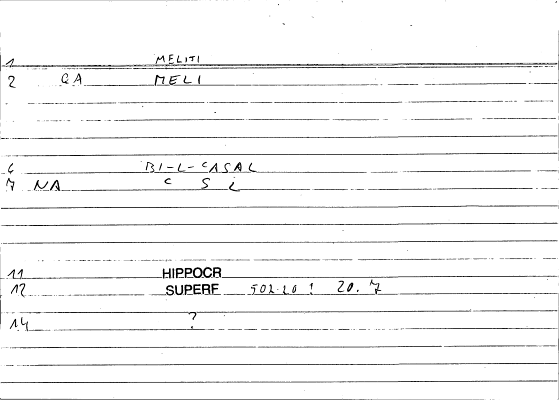 1 MELITI
2 GA MELI
6 BI-L-CASAL
7 NA C S i
11 HIPPOCR
12 SUPERF 502.20 ! 20.7
14 ?